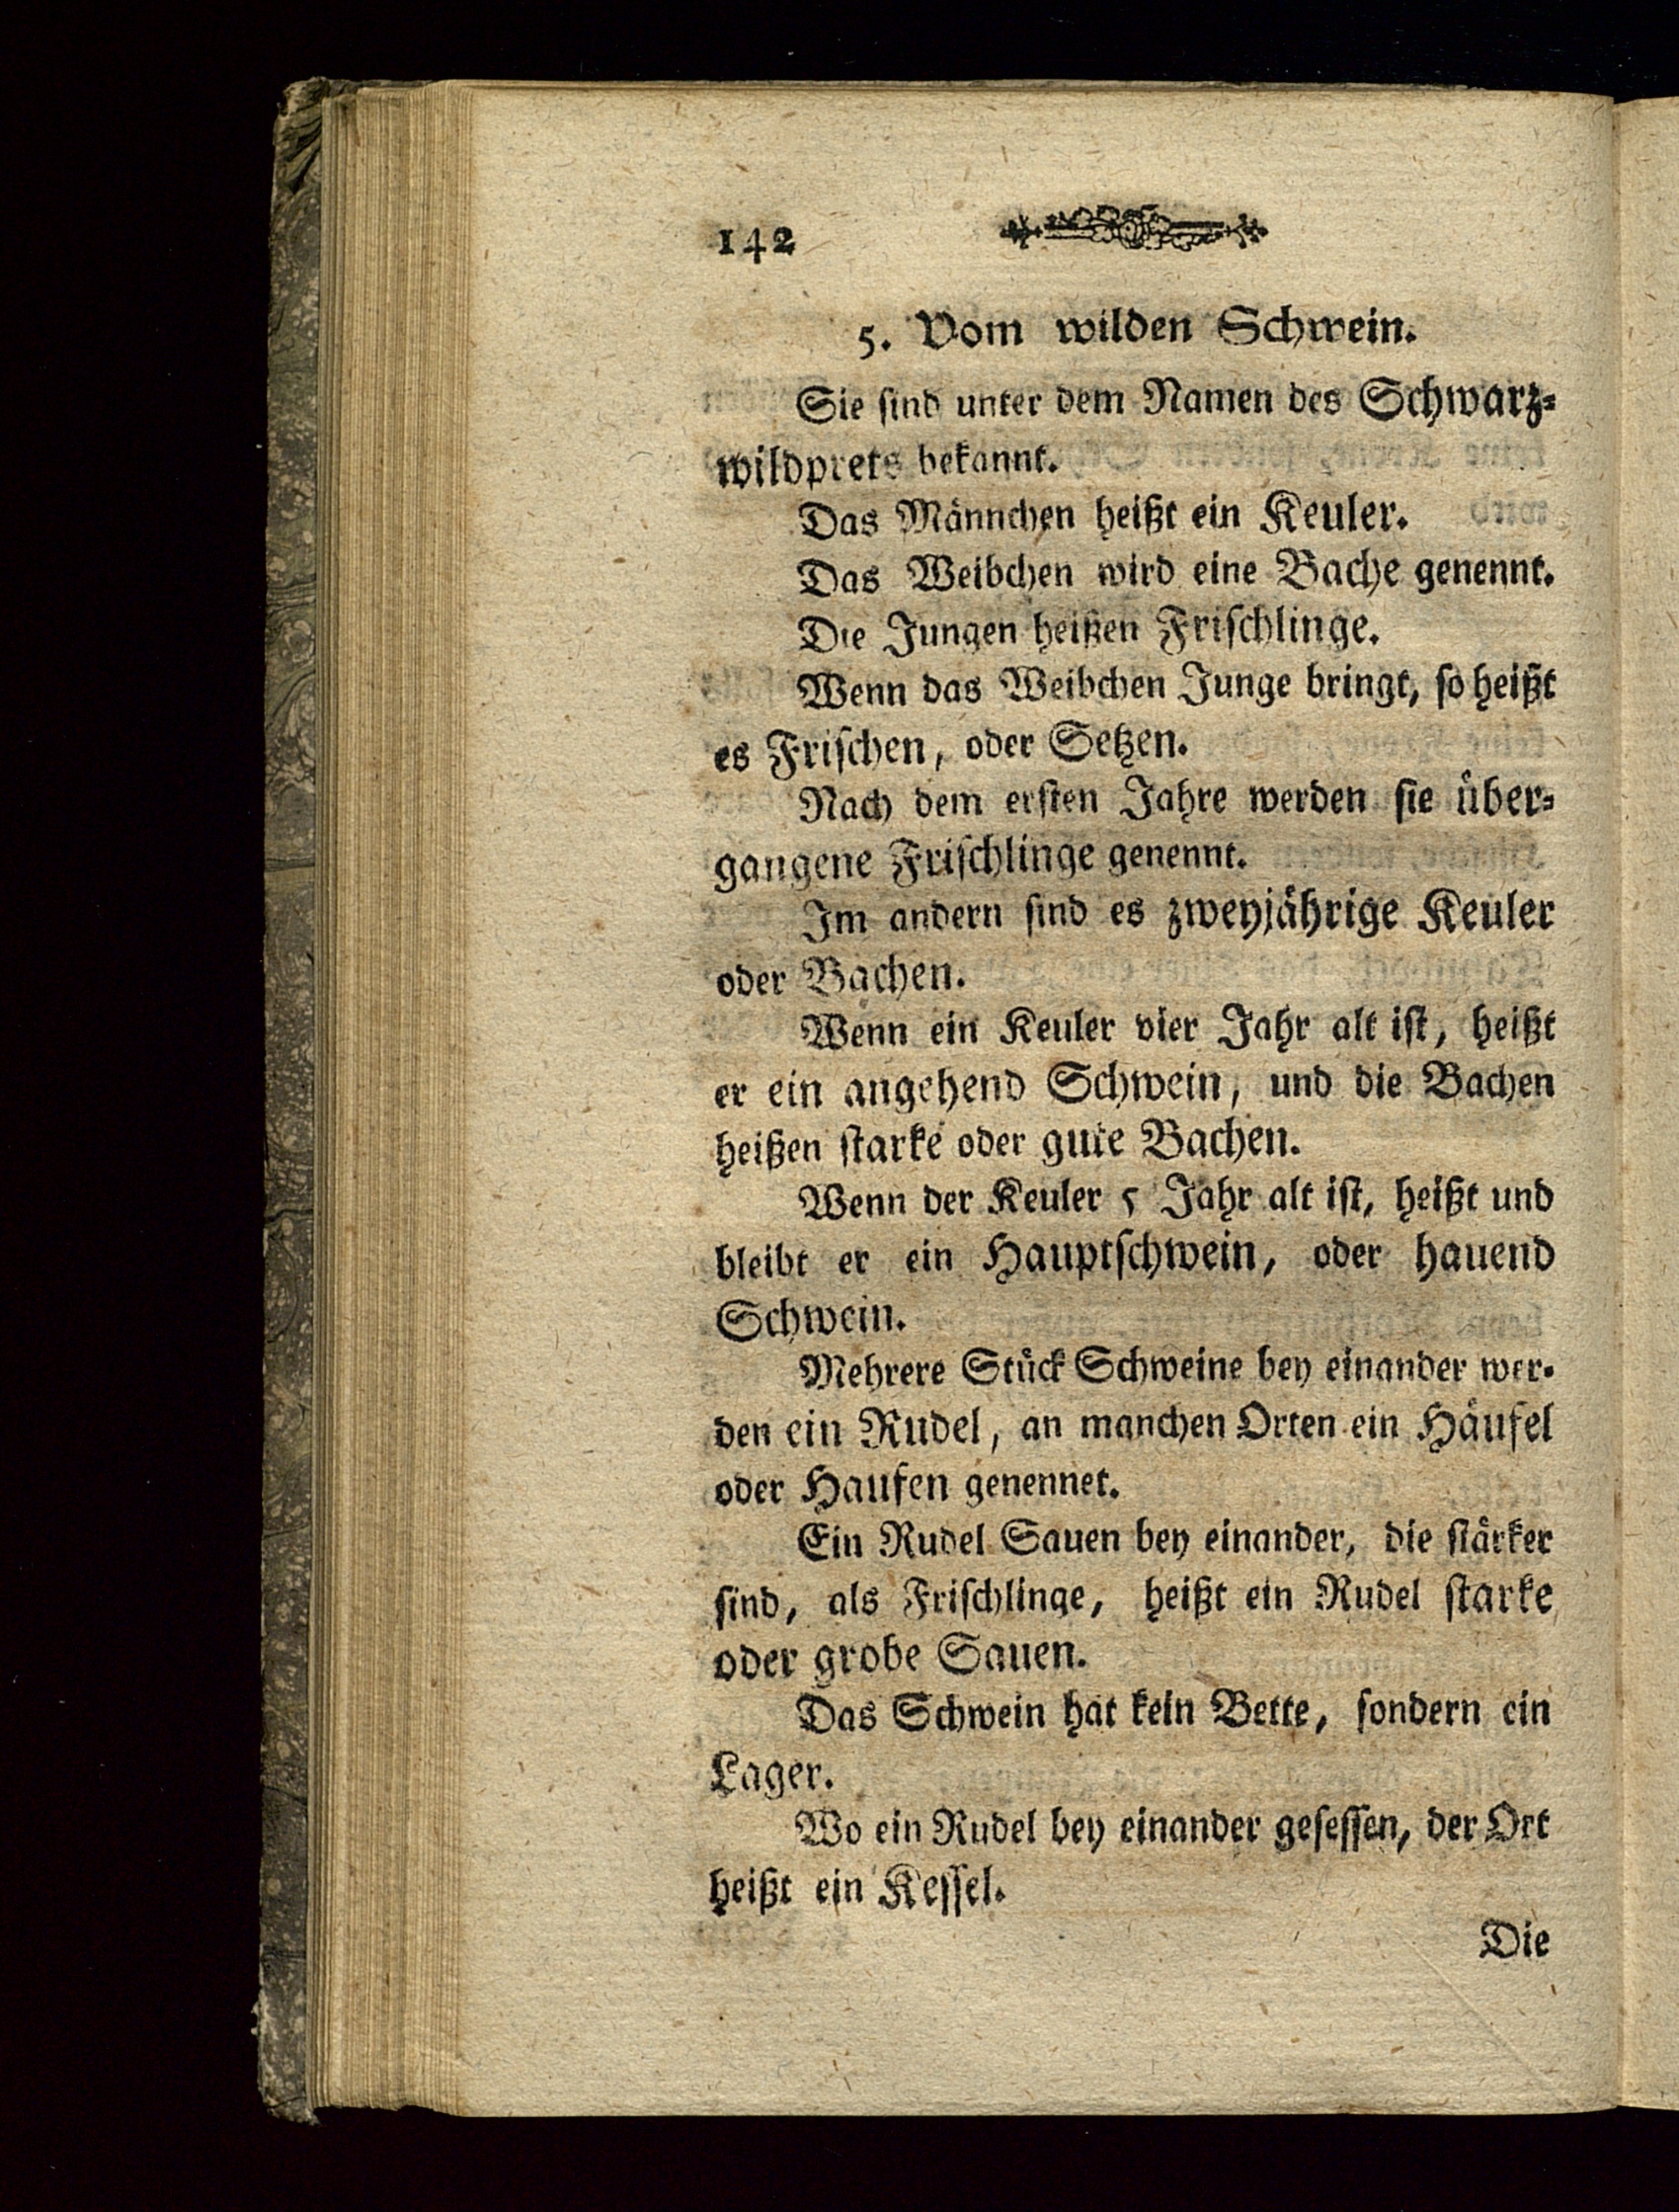 142
5. Vom wilden Schwein.
Sie sind unter dem Namen des Schwarz-
wildprets bekannt.
Das Männchen heißt ein Keuler.
Das Weibchen wird eine Bache genennt.
Die Jungen heißen Frischlinge.
Wenn das Weibchen Junge bringt, so heißt
es Frischen, oder Setzen.
Nach dem ersten Jahre werden sie über-
gangene Frischlinge genennt.
Im andern sind es zweyjährige Keuler
oder Bachen.
Wenn ein Keuler vier Jahr alt ist, heißt
er ein angehend Schwein, und die Bachen
heißen starke oder gute Bachen.
Wenn der Keuler 5 Jahr alt ist, heißt und
bleibt er ein Hauptschwein, oder hauend
Schwein.
Mehrere Stück Schweine bey einander wer-
den ein Rudel, an manchen Orten ein Häufel
oder Haufen genennet.
Ein Rudel Sauen bey einander, die stärker
sind, als Frischlinge, heißt ein Rudel starke
oder grobe Sauen.
Das Schwein hat kein Bette, sondern ein
Lager.
Wo ein Rudel bey einander gesessen, der Ort
heißt ein Kessel.
Die